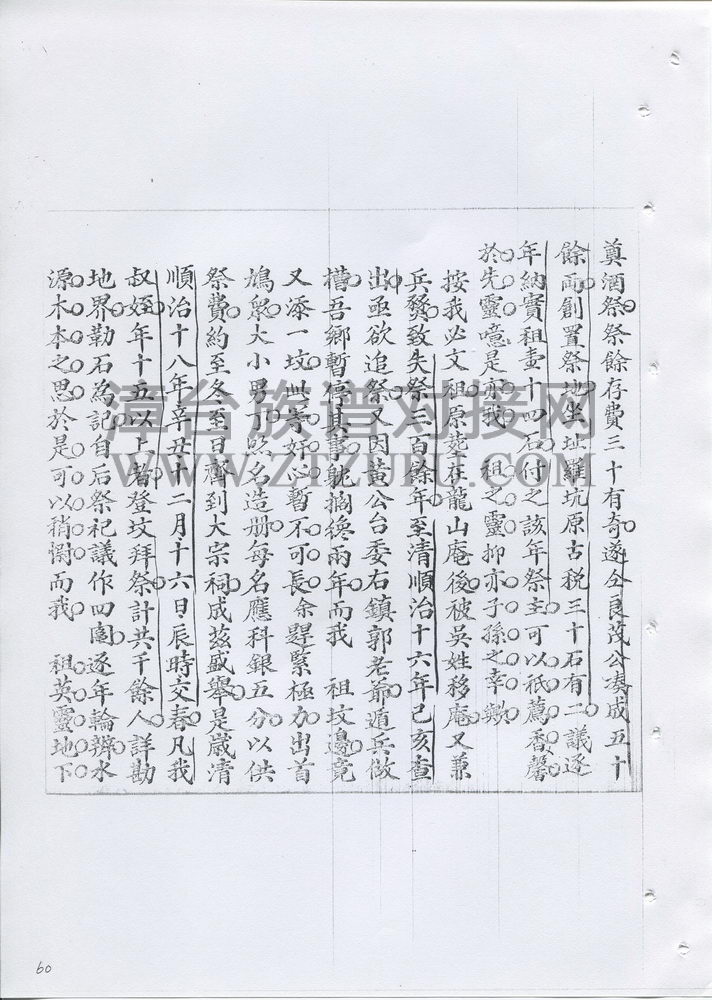 奠酒祭祭餘存費三十有奇遂仝良茂公湊成五十
餘両創置祭地坐址羅坑原古税三十石有二議逐
年納實租壹十四石付之該年祭主可以祇薦香馨
於先靈噫是亦我 祖之靈抑亦子孫之幸歟
按我必文祖原塟在龍山庵後被吳姓移庵又兼
兵燹致失祭三百餘年至清順治十六年己亥查
出亟欲追祭又因黃公台委右鎮郭老爺遁兵做
槽吾鄉暫停其事躭擱幾兩年而我 祖坟邊竟
又添一坟此等奸心暫不可長余趕緊極力出首
鳩衆大小男丁照名造册每名應科銀五分以供
祭費約至冬至日齊到大宗祠成茲盛舉是歲清
順治十八年辛丑十二月十六日辰時交春凡我
叔姪年十五以上者登坟拜祭計共千餘人詳勘
地界勒石為記自后祭祀議作四圍逐年輪辦水
源木本之思於是可以稍慰而我 祖英靈地下
漳台族谱对接网
WWW.ZTZUPU.COM
60